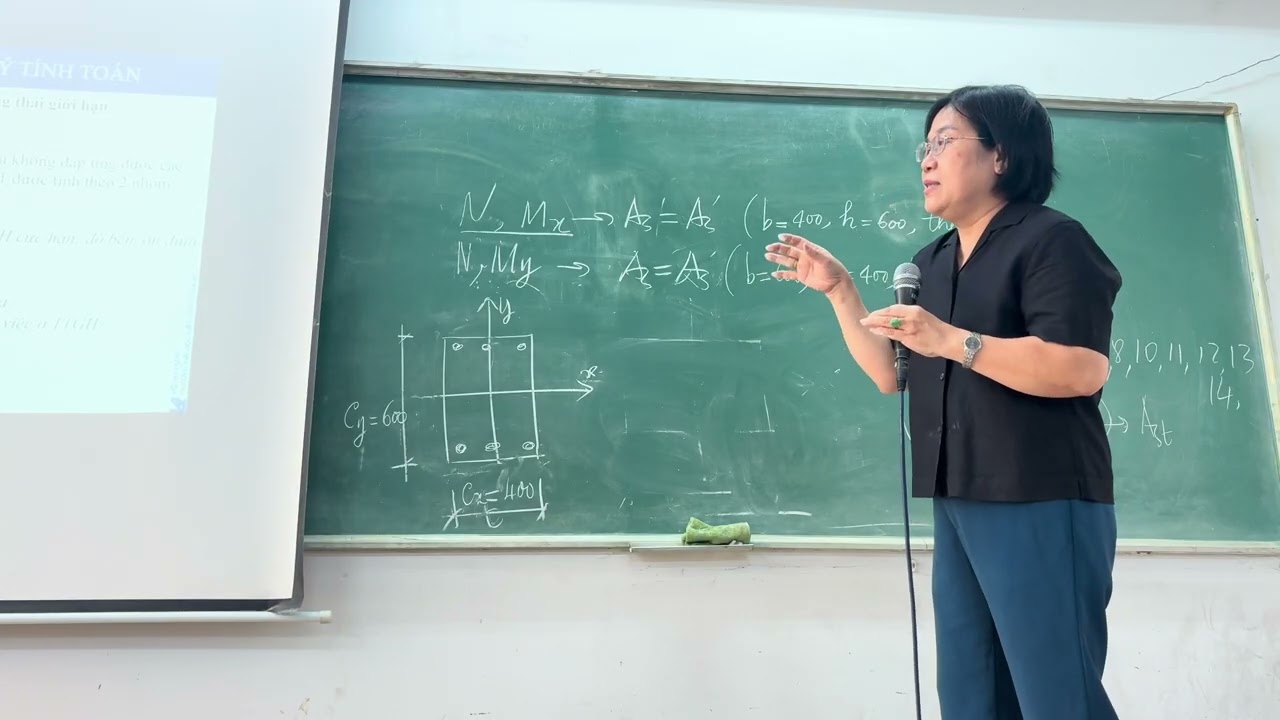 Ý TÍNH TOÁN
g thái giới hạn
không đáp ứng được các
được tính theo 2 nhóm
việc
TTGH
N, Mx → As = As' (b=400, h=600, th
N, My → As = As' (b= = 400
y
x
Cy=600
Cx=400
8, 10, 11, 12, 13
14,
→ Ast